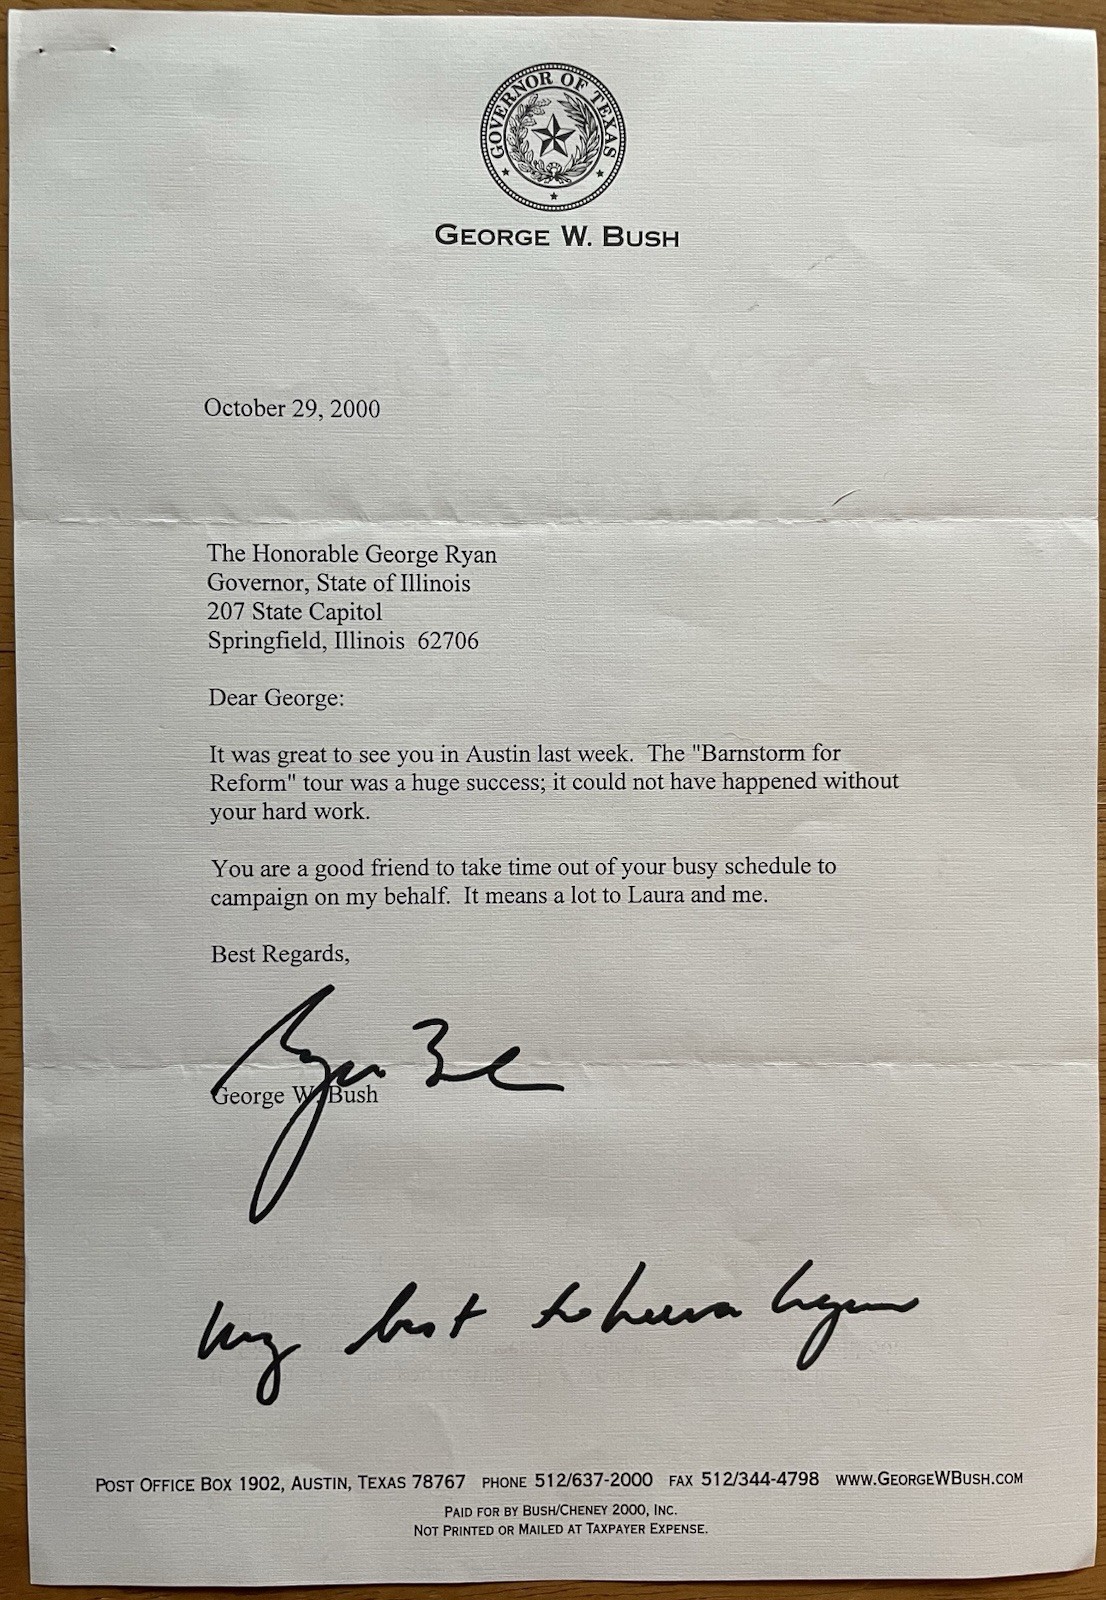 GOVERNOR OF TEXAS
GEORGE W. BUSH
October 29, 2000
The Honorable George Ryan
Governor, State of Illinois
207 State Capitol
Springfield, Illinois 62706
Dear George:
It was great to see you in Austin last week. The "Barnstorm for
Reform" tour was a huge success; it could not have happened without
your hard work.
You are a good friend to take time out of your busy schedule to
campaign on my behalf. It means a lot to Laura and me.
Best Regards,
George W. Bush
My best to Lura Lynn
POST OFFICE BOX 1902, AUSTIN, TEXAS 78767 PHONE 512/637-2000 FAX 512/344-4798 WWW.GEORGEWBUSH.COM
PAID FOR BY BUSH/CHENEY 2000, INC.
NOT PRINTED OR MAILED AT TAXPAYER EXPENSE.